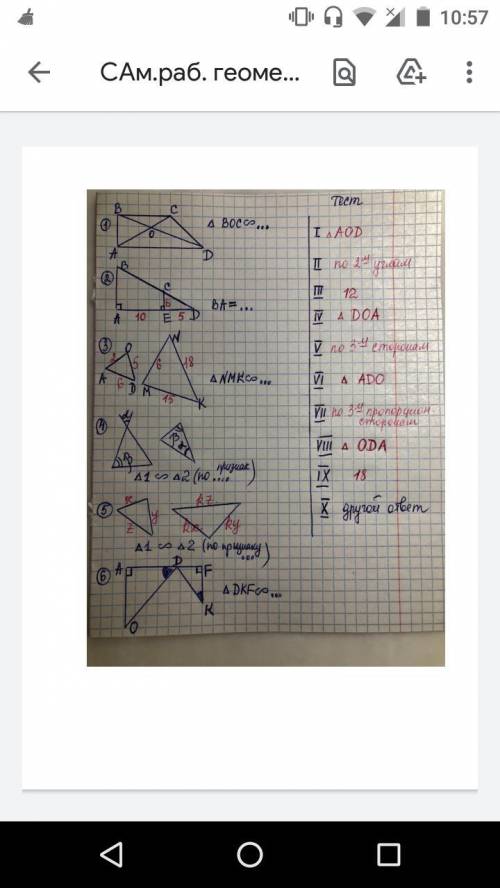 10:57
САм.раб. геоме...
Тест
① B C O A D
Δ BOC∽...
② B C 6 A 10 E 5 D
BA=...
③ O 5 A 6 D N 6 18 M 15 K
Δ NMK∽...
④ Δ1 ∽ Δ2 (по .... признак)
⑤ y z kz kx ky
Δ1 ∽ Δ2 (по признаку ...)
⑥ A D F O K
Δ DKF∽...
I Δ AOD
II по 2ум углам
III 12
IV Δ DOA
V по 3ем сторонам
VI Δ ADO
VII по 3ем пропорцион. сторонам
VIII Δ ODA
IX 18
X другой ответ